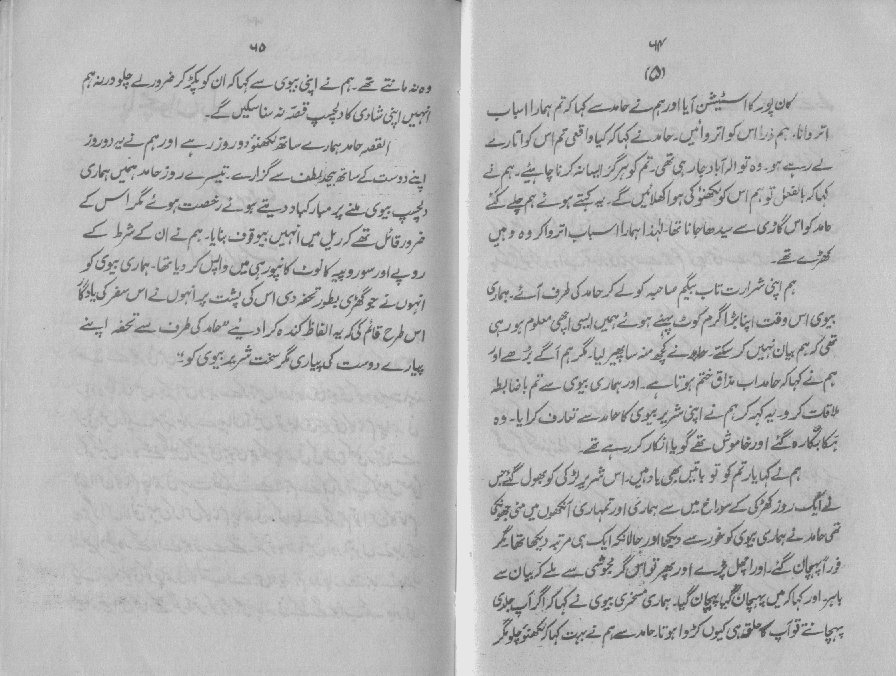 ۶۴
(۵)
کان پور کا اسٹیشن آیا اور ہم نے حامد سے کہا کہ تم ہمارا اسباب
اتروانا۔ ہم ذرا اس کو اتروائیں۔ حامد نے کہا کہ کیا واقعی تم اس کو اتارے
لے رہے ہو۔ وہ تو الہ آباد جا رہی تھی۔ تم کو ہرگز ایسا نہ کرنا چاہیئے۔ ہم نے
کہا کہ بالفعل تو ہم اس کو لکھنؤ کی ہوا کھلائیں گے۔ یہ کہتے ہوئے ہم چلے گئے
حامد کو اس گاڑی سے سیدھا جانا تھا۔ لہٰذا ہمارا اسباب اتروا کر وہ وہیں
کھڑے تھے۔
ہم اپنی شرارت تاب بیگم صاحبہ کو لے کر حامد کی طرف آئے۔ ہماری
بیوی اس وقت اپنا بڑا گرم کوٹ پہنے ہوئے ہمیں ایسی اچھی معلوم ہو رہی
تھی کہ ہم بیان نہیں کر سکتے۔ حامد نے کچھ منہ سا پھیر لیا۔ مگر ہم آگے بڑھے اور
ہم نے کہا کہ حامد اب مذاق ختم ہوتا ہے۔ اور ہماری بیوی سے تم باضابطہ
ملاقات کرو۔ یہ کہہ کر ہم نے اپنی شریر بیوی کا حامد سے تعارف کرایا۔ وہ
ہکا بکا رہ گئے اور خاموش تھے گویا انکار کر رہے تھے۔
ہم نے کہا یار تم کو تو باتیں بھی یاد نہیں۔ اس شریر لڑکی کو بھول گئے جس
نے ایک روز کھڑکی کے سوراخ میں سے ہماری اور تمہاری آنکھوں میں مٹی جھونکی
تھی حامد نے ہماری بیوی کو غور سے دیکھا اور حالانکہ ایک ہی مرتبہ دیکھا تھا مگر
فوراً پہچان گئے۔ اور اچھل پڑے اور پھر تو اس گرمجوشی سے ملے کہ بیان سے
باہر۔ اور کہا کہ میں پہچان گیا پہچان گیا۔ ہماری مسخری بیوی نے کہا کہ اگر آپ جلدی
پہچانتے تو آپ کا حلقہ ہی کیوں کڑوا ہوتا۔ حامد سے ہم نے بہت کہا کہ لکھنؤ چلو مگر
۶۵
وہ نہ مانتے تھے۔ ہم نے اپنی بیوی سے کہا کہ ان کو پکڑ کر ضرور لے چلو ورنہ ہم
انہیں اپنی شادی کا دلچسپ قصہ نہ سنا سکیں گے۔
القصہ حامد ہمارے ساتھ لکھنؤ دو روز رہے اور ہم نے یہ دو روز
اپنے دوست کے ساتھ بیحد لطف سے گزارے۔ تیسرے روز حامد ہمیں ہماری
دلچسپ بیوی ملنے پر مبارکباد دیتے ہوئے رخصت ہوئے مگر اس کے
ضرور قائل تھے کہ ریل میں انہیں بیوقوف بنایا۔ ہم نے ان کے شرط کے
روپے اور سو روپیہ کا نوٹ کانپور ہی میں واپس کر دیا تھا۔ ہماری بیوی کو
انہوں نے جو گھڑی بطور تحفہ دی اس کی پشت پر انہوں نے اس سفر کی یادگار
اس طرح قائم کی کہ یہ الفاظ کندہ کرا دیئے "حامد کی طرف سے تحفہ اپنے
پیارے دوست کی پیاری مگر سخت شریر بیوی کو"